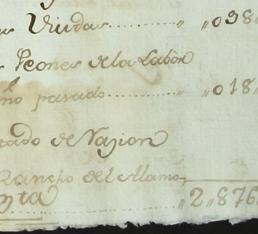 Viudas ........ " " 098
Peones de la Labor
ño pasado ........ " " 018
ado de Nazion
Rancho del Alamo
nta " 2,, 876